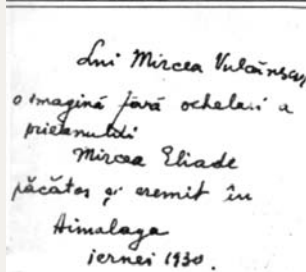 Lui Mircea Vulcănescu
o imagină fără ochelari a
prietenului
Mircea Eliade
păcătos și eremit în
Himalaya
iernei 1930.